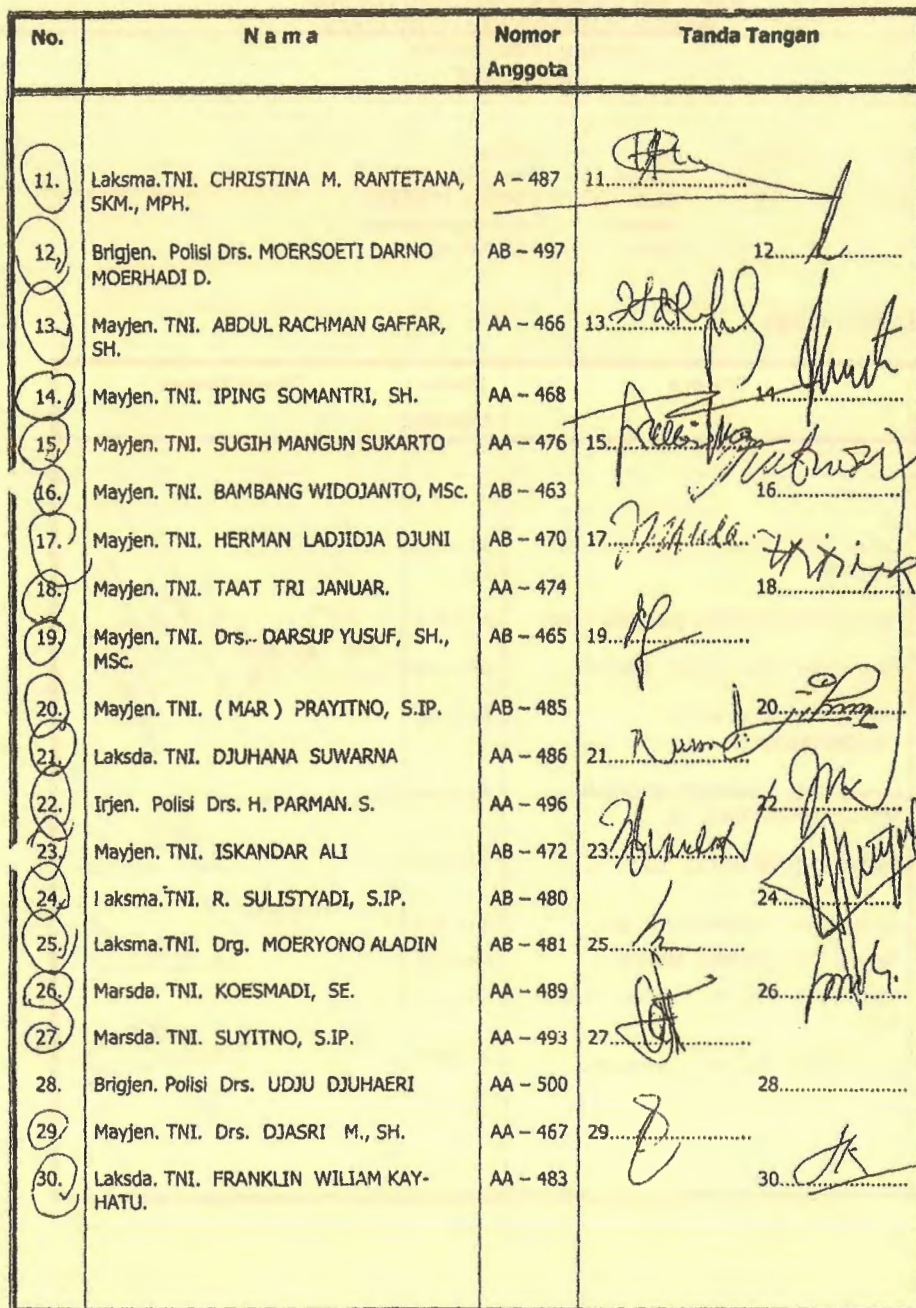 No. N a m a Nomor Anggota Tanda Tangan
11. Laksma.TNI. CHRISTINA M. RANTETANA, A – 487 11....................
SKM., MPH.
12, Brigjen. Polisi Drs. MOERSOETI DARNO AB – 497 12....................
MOERHADI D.
13. Mayjen. TNI. ABDUL RACHMAN GAFFAR, AA – 466 13....................
SH.
14. Mayjen. TNI. IPING SOMANTRI, SH. AA – 468 14....................
15, Mayjen. TNI. SUGIH MANGUN SUKARTO AA – 476 15....................
16. Mayjen. TNI. BAMBANG WIDOJANTO, MSc. AB – 463 16....................
17. Mayjen. TNI. HERMAN LADJIDJA DJUNI AB – 470 17....................
18. Mayjen. TNI. TAAT TRI JANUAR. AA – 474 18....................
19. Mayjen. TNI. Drs,- DARSUP YUSUF, SH., AB – 465 19....................
MSc.
20. Mayjen. TNI. ( MAR ) PRAYITNO, S.IP. AB – 485 20....................
21. Laksda. TNI. DJUHANA SUWARNA AA – 486 21....................
22. Irjen. Polisi Drs. H. PARMAN. S. AA – 496 22....................
23. Mayjen. TNI. ISKANDAR ALI AB – 472 23....................
24. Laksma.TNI. R. SULISTYADI, S.IP. AB – 480 24....................
25. Laksma.TNI. Drg. MOERYONO ALADIN AB – 481 25....................
26. Marsda. TNI. KOESMADI, SE. AA – 489 26....................
27. Marsda. TNI. SUYITNO, S.IP. AA – 493 27....................
28. Brigjen. Polisi Drs. UDJU DJUHAERI AA – 500 28....................
29. Mayjen. TNI. Drs. DJASRI M., SH. AA – 467 29....................
30. Laksda. TNI. FRANKLIN WILIAM KAY- AA – 483 30....................
HATU.